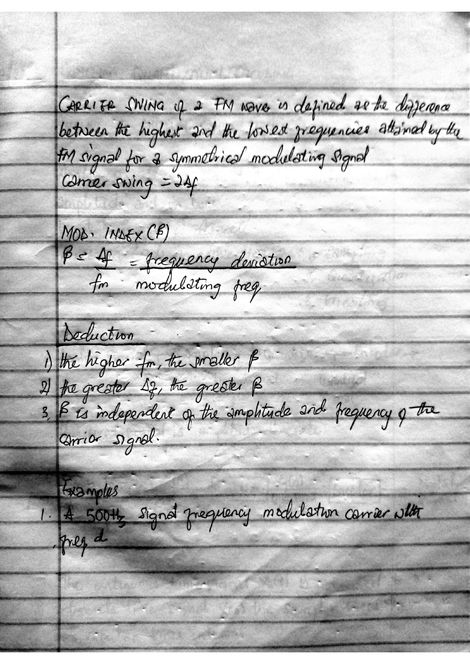 CARRIER SWING of a FM wave is defined as the difference
between the highest and the lowest frequencies attained by the
FM signal for a symmetrical modulating signal
Carrier swing = 2Δf
MOD. INDEX (β)
β = Δf = frequency deviation
fm modulating freq
Deduction
1) the higher fm, the smaller β
2) the greater Δf, the greater β
3, β is independent of the amplitude and frequency of the
carrior signal.
Examples
1. A 500Hz signal frequency modulation carrier with
freq d